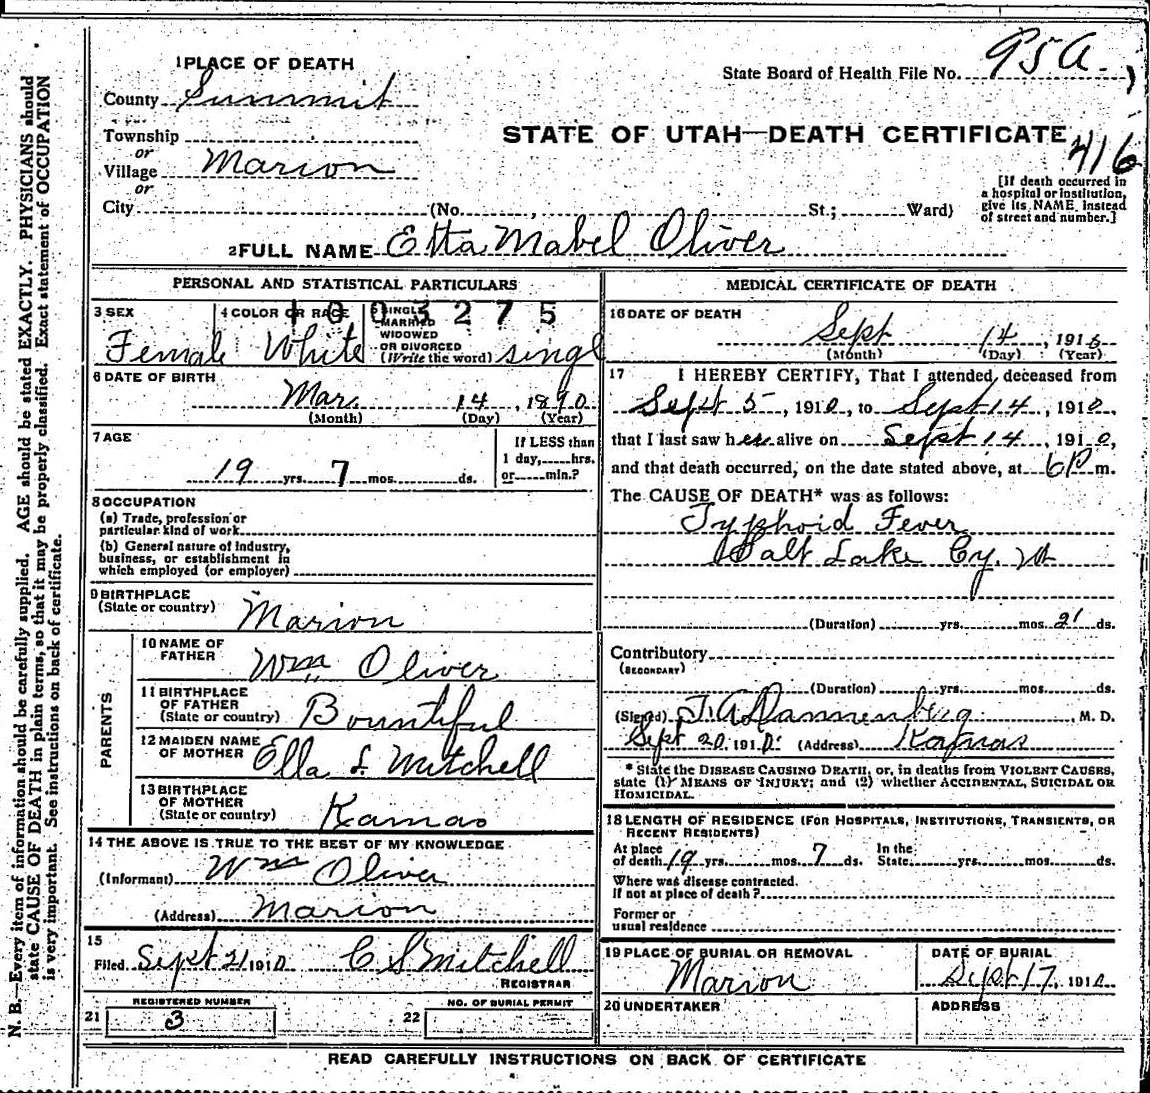 95A.
1 PLACE OF DEATH
State Board of Health File No.
County Summit
Township
STATE OF UTAH—DEATH CERTIFICATE
416
or
Village Marion
or
[If death occurred in
a hospital or institution,
give its NAME, instead
of street and number.]
City (No. , St.; Ward)
2 FULL NAME Etta Mabel Oliver
PERSONAL AND STATISTICAL PARTICULARS
1003275
3 SEX
Female
4 COLOR OR RACE
White
5 SINGLE
MARRIED
WIDOWED
OR DIVORCED
(Write the word) singl
6 DATE OF BIRTH
Mar. 14, 1890
(Month) (Day) (Year)
7 AGE
19 yrs. 7 mos. ds.
If LESS than
1 day, hrs.
or min.?
8 OCCUPATION
(a) Trade, profession or
particular kind of work
(b) General nature of industry,
business, or establishment in
which employed (or employer)
9 BIRTHPLACE
(State or country) Marion
PARENTS
10 NAME OF
FATHER Wm Oliver
11 BIRTHPLACE
OF FATHER
(State or country) Bountiful
12 MAIDEN NAME
OF MOTHER Ella S. Mitchell
13 BIRTHPLACE
OF MOTHER
(State or country) Kamas
14 THE ABOVE IS TRUE TO THE BEST OF MY KNOWLEDGE
(Informant) Wm Oliver
(Address) Marion
15
Filed Sept 21 1910 C S Mitchell
REGISTRAR
21 REGISTERED NUMBER
3
22 NO. OF BURIAL PERMIT
MEDICAL CERTIFICATE OF DEATH
16 DATE OF DEATH
Sept 14, 1910
(Month) (Day) (Year)
17 I HEREBY CERTIFY, That I attended deceased from
Sept 5, 1910, to Sept 14, 1910,
that I last saw her alive on Sept 14, 1910,
and that death occurred, on the date stated above, at 6 P m.
The CAUSE OF DEATH* was as follows:
Typhoid Fever
Salt Lake Cy. Ut
(Duration) yrs. mos. 21 ds.
Contributory
(SECONDARY)
(Duration) yrs. mos. ds.
(Signed) J. A. Dannenberg, M. D.
Sept 20, 1910. (Address) Kamas
* State the DISEASE CAUSING DEATH, or, in deaths from VIOLENT CAUSES,
state (1) MEANS OF INJURY; and (2) whether ACCIDENTAL, SUICIDAL OR
HOMICIDAL.
18 LENGTH OF RESIDENCE (FOR HOSPITALS, INSTITUTIONS, TRANSIENTS, OR
RECENT RESIDENTS)
At place
of death 19 yrs. mos. 7 ds.
In the
State yrs. mos. ds.
Where was disease contracted.
If not at place of death?
Former or
usual residence
19 PLACE OF BURIAL OR REMOVAL
Marion
DATE OF BURIAL
Sept 17, 1910
20 UNDERTAKER
ADDRESS
READ CAREFULLY INSTRUCTIONS ON BACK OF CERTIFICATE
N. B.—Every item of information should be carefully supplied. AGE should be stated EXACTLY. PHYSICIANS should
state CAUSE OF DEATH in plain terms, so that it may be properly classified. Exact statement of OCCUPATION
is very important. See instructions on back of certificate.